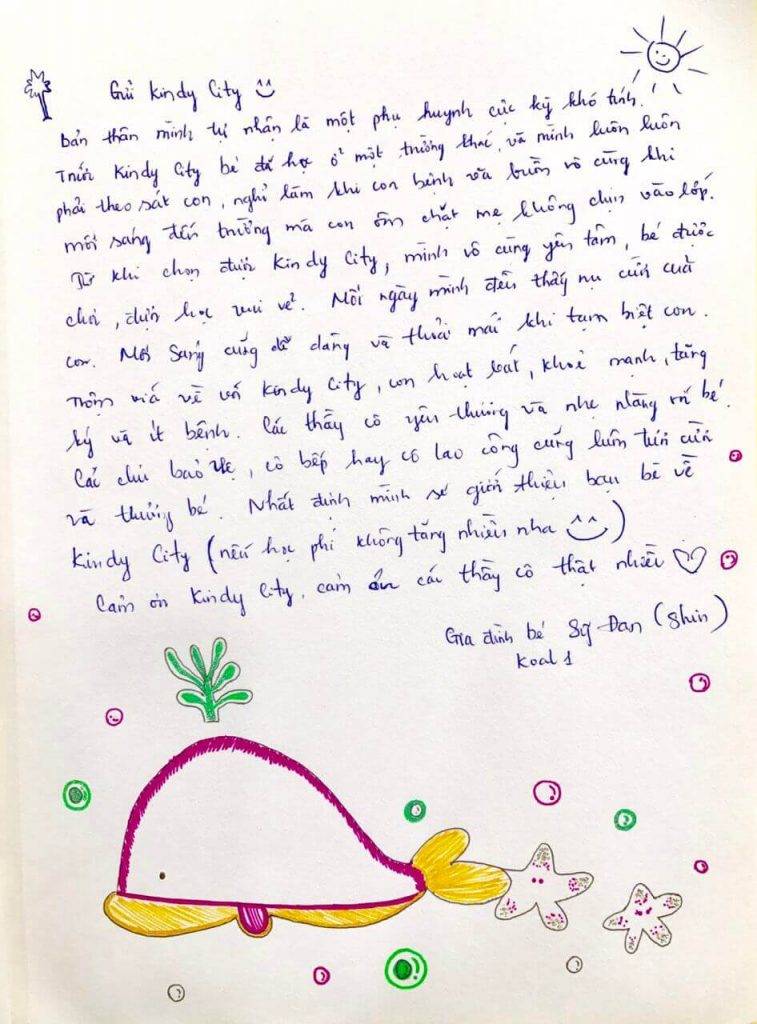 Gửi Kindy City
Bản thân mình tự nhận là một phụ huynh cực kỳ khó tính.
Trước Kindy City bé đã học ở một trường khác, và mình luôn luôn
phải theo sát con, nghỉ làm khi con bệnh và buồn vô cùng khi
mỗi sáng đến trường mà con ôm chặt mẹ không chịu vào lớp.
Từ khi chọn được Kindy City, mình vô cùng yên tâm, bé được
chơi, được học vui vẻ. Mỗi ngày mình đều thấy nụ cười của
con. Mỗi sáng cũng dễ dàng và thoải mái khi tạm biệt con.
Trộm vía về với Kindy City, con hoạt bát, khoẻ mạnh, tăng
ký và ít bệnh. Các thầy cô yêu thương và nhẹ nhàng với bé.
Các chú bảo vệ, cô bếp hay cô lao công cũng luôn tươi cười
và thương bé. Nhất định mình sẽ giới thiệu bạn bè về
Kindy City (nếu học phí không tăng nhiều nha)
Cảm ơn Kindy City, cảm ơn các thầy cô thật nhiều
Gia đình bé Sỹ Đan (Shin)
Koal 1